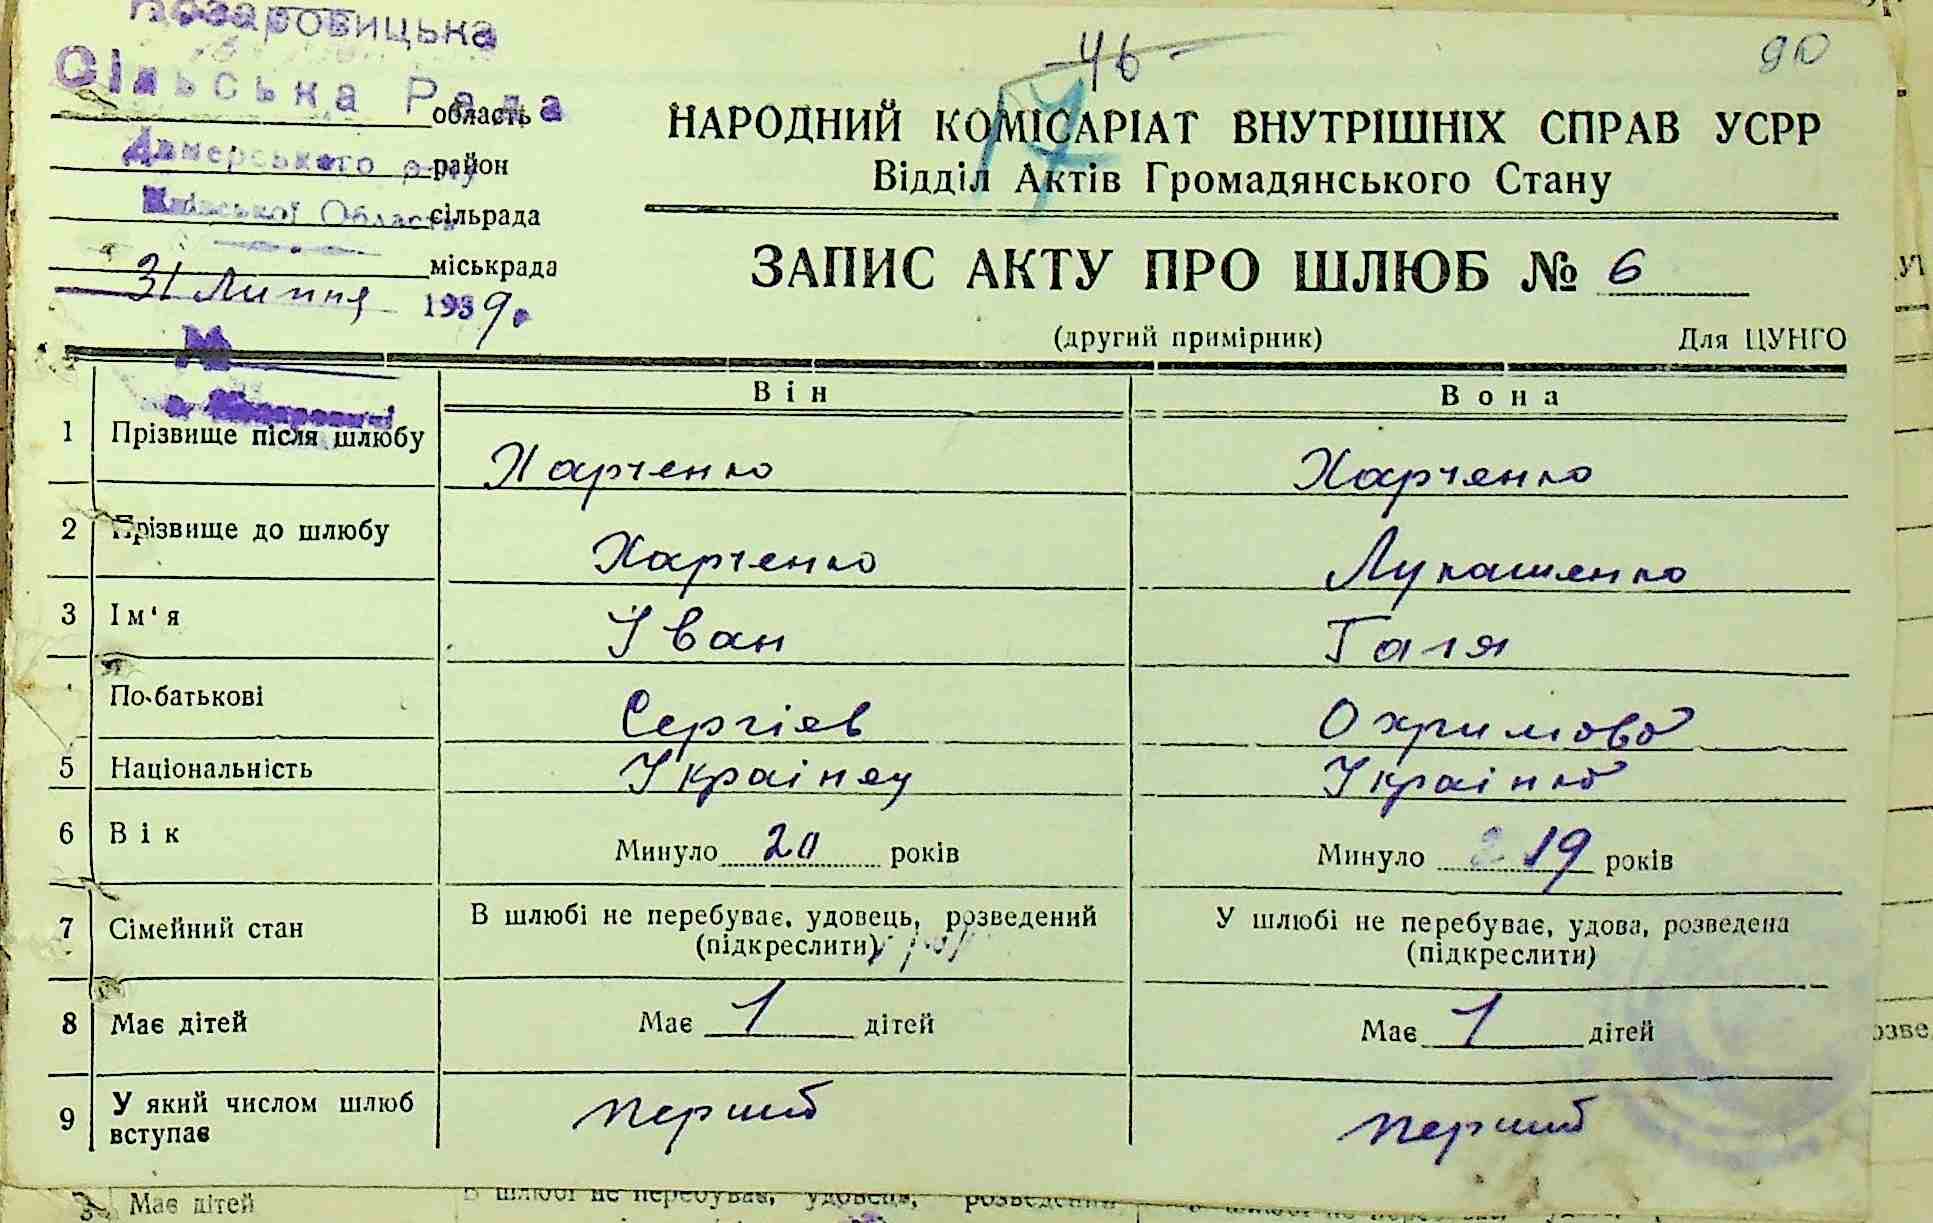 Козаровицька
Сільська Рада
область
Димерського р-ну
район
Київської Області
сільрада
міськрада
31 Липня 1939 р.
46
90
НАРОДНИЙ КОМІСАРІАТ ВНУТРІШНІХ СПРАВ УСРР
Відділ Актів Громадянського Стану
ЗАПИС АКТУ ПРО ШЛЮБ № 6
(другий примірник) Для ЦУНГО
Він Вона
1 Прізвище після шлюбу Харченко Харченко
2 Прізвище до шлюбу Харченко Лукашенко
3 Ім'я Іван Галя
По-батькові Сергієв Охримова
5 Національність Українец Українка
6 Вік Минуло 20 років Минуло 19 років
7 Сімейний стан В шлюбі не перебуває, удовець, розведений У шлюбі не перебуває, удова, розведена
(підкреслити) (підкреслити)
8 Має дітей Має 1 дітей Має 1 дітей
9 У який числом шлюб
вступає перший перший
Має дітей В шлюбі не перебуває, удовець, розведений